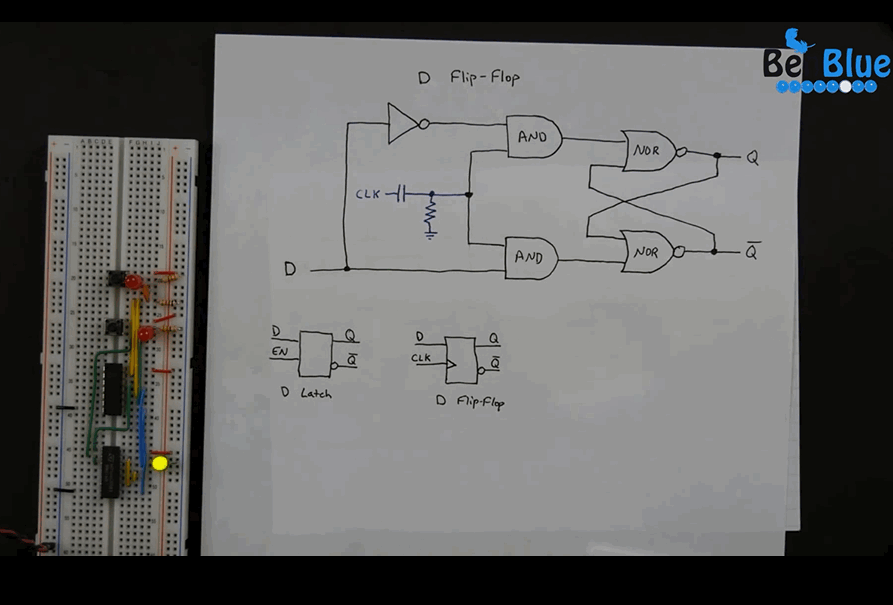 Be Blue
D Flip-Flop
AND
NOR
Q
CLK
D
AND
NOR
Q̅
D
Q
EN
Q̅
D Latch
D
Q
CLK
Q̅
D Flip-Flop